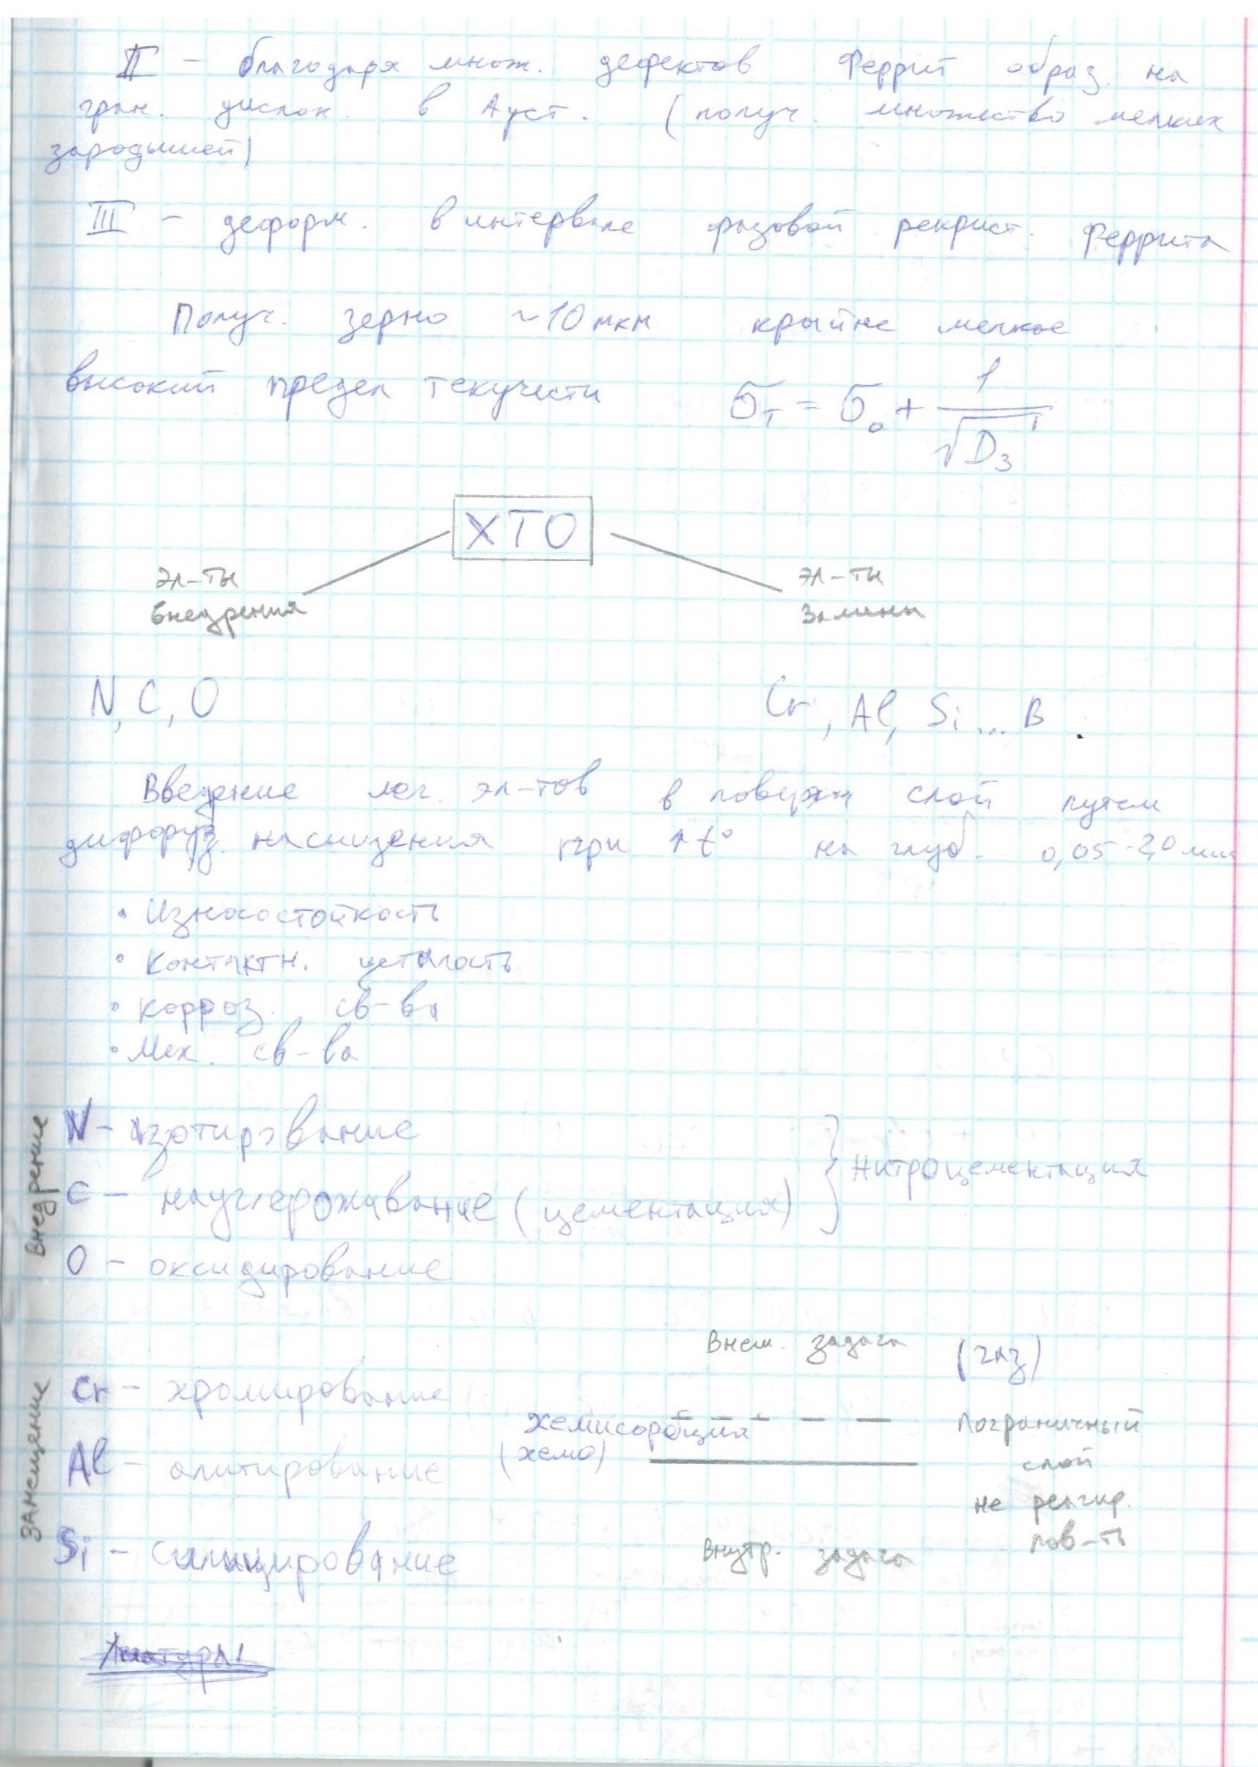 II – благодаря множ. дефектов феррит образ. на
гран. дислок. в Ауст. (получ. множество мелких
зародышей)
III – деформ. в интервале фазовой рекрист. феррита
Получ. зерно ~10 мкм крайне мелкое
высокий предел текучести σт = σ₀ + 1/√Dз
ХТО
эл-ты внедрения
эл-ты замены
N, C, O
Cr, Al, Si ... B
Введение лег. эл-тов в поверхн слой путем
диффуз. насыщения при ↑t° на глуб. 0,05-2,0 мм
• Износостойкость
• Контактн. усталость
• Корроз. св-ва
• Мех. св-ва
Внедрение
N – азотирование
C – науглероживание (цементация)
} Нитроцементация
O – оксидирование
Замещение
Cr – хромирование
Al – алитирование
Si – силицирование
Внеш. задача (газ)
хемисорбция
(хемо)
пограничный
слой
не реагир.
пов-ть
Внутр. задача